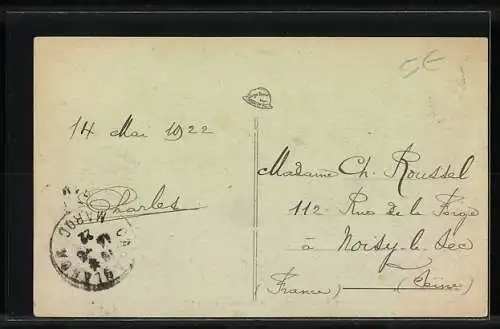 5€
14 Mai 1922
Charles
Madame Ch. Roussel
112 Rue de la Forge
à Noisy-le-Sec
(France) — (Seine)
MAROC
22